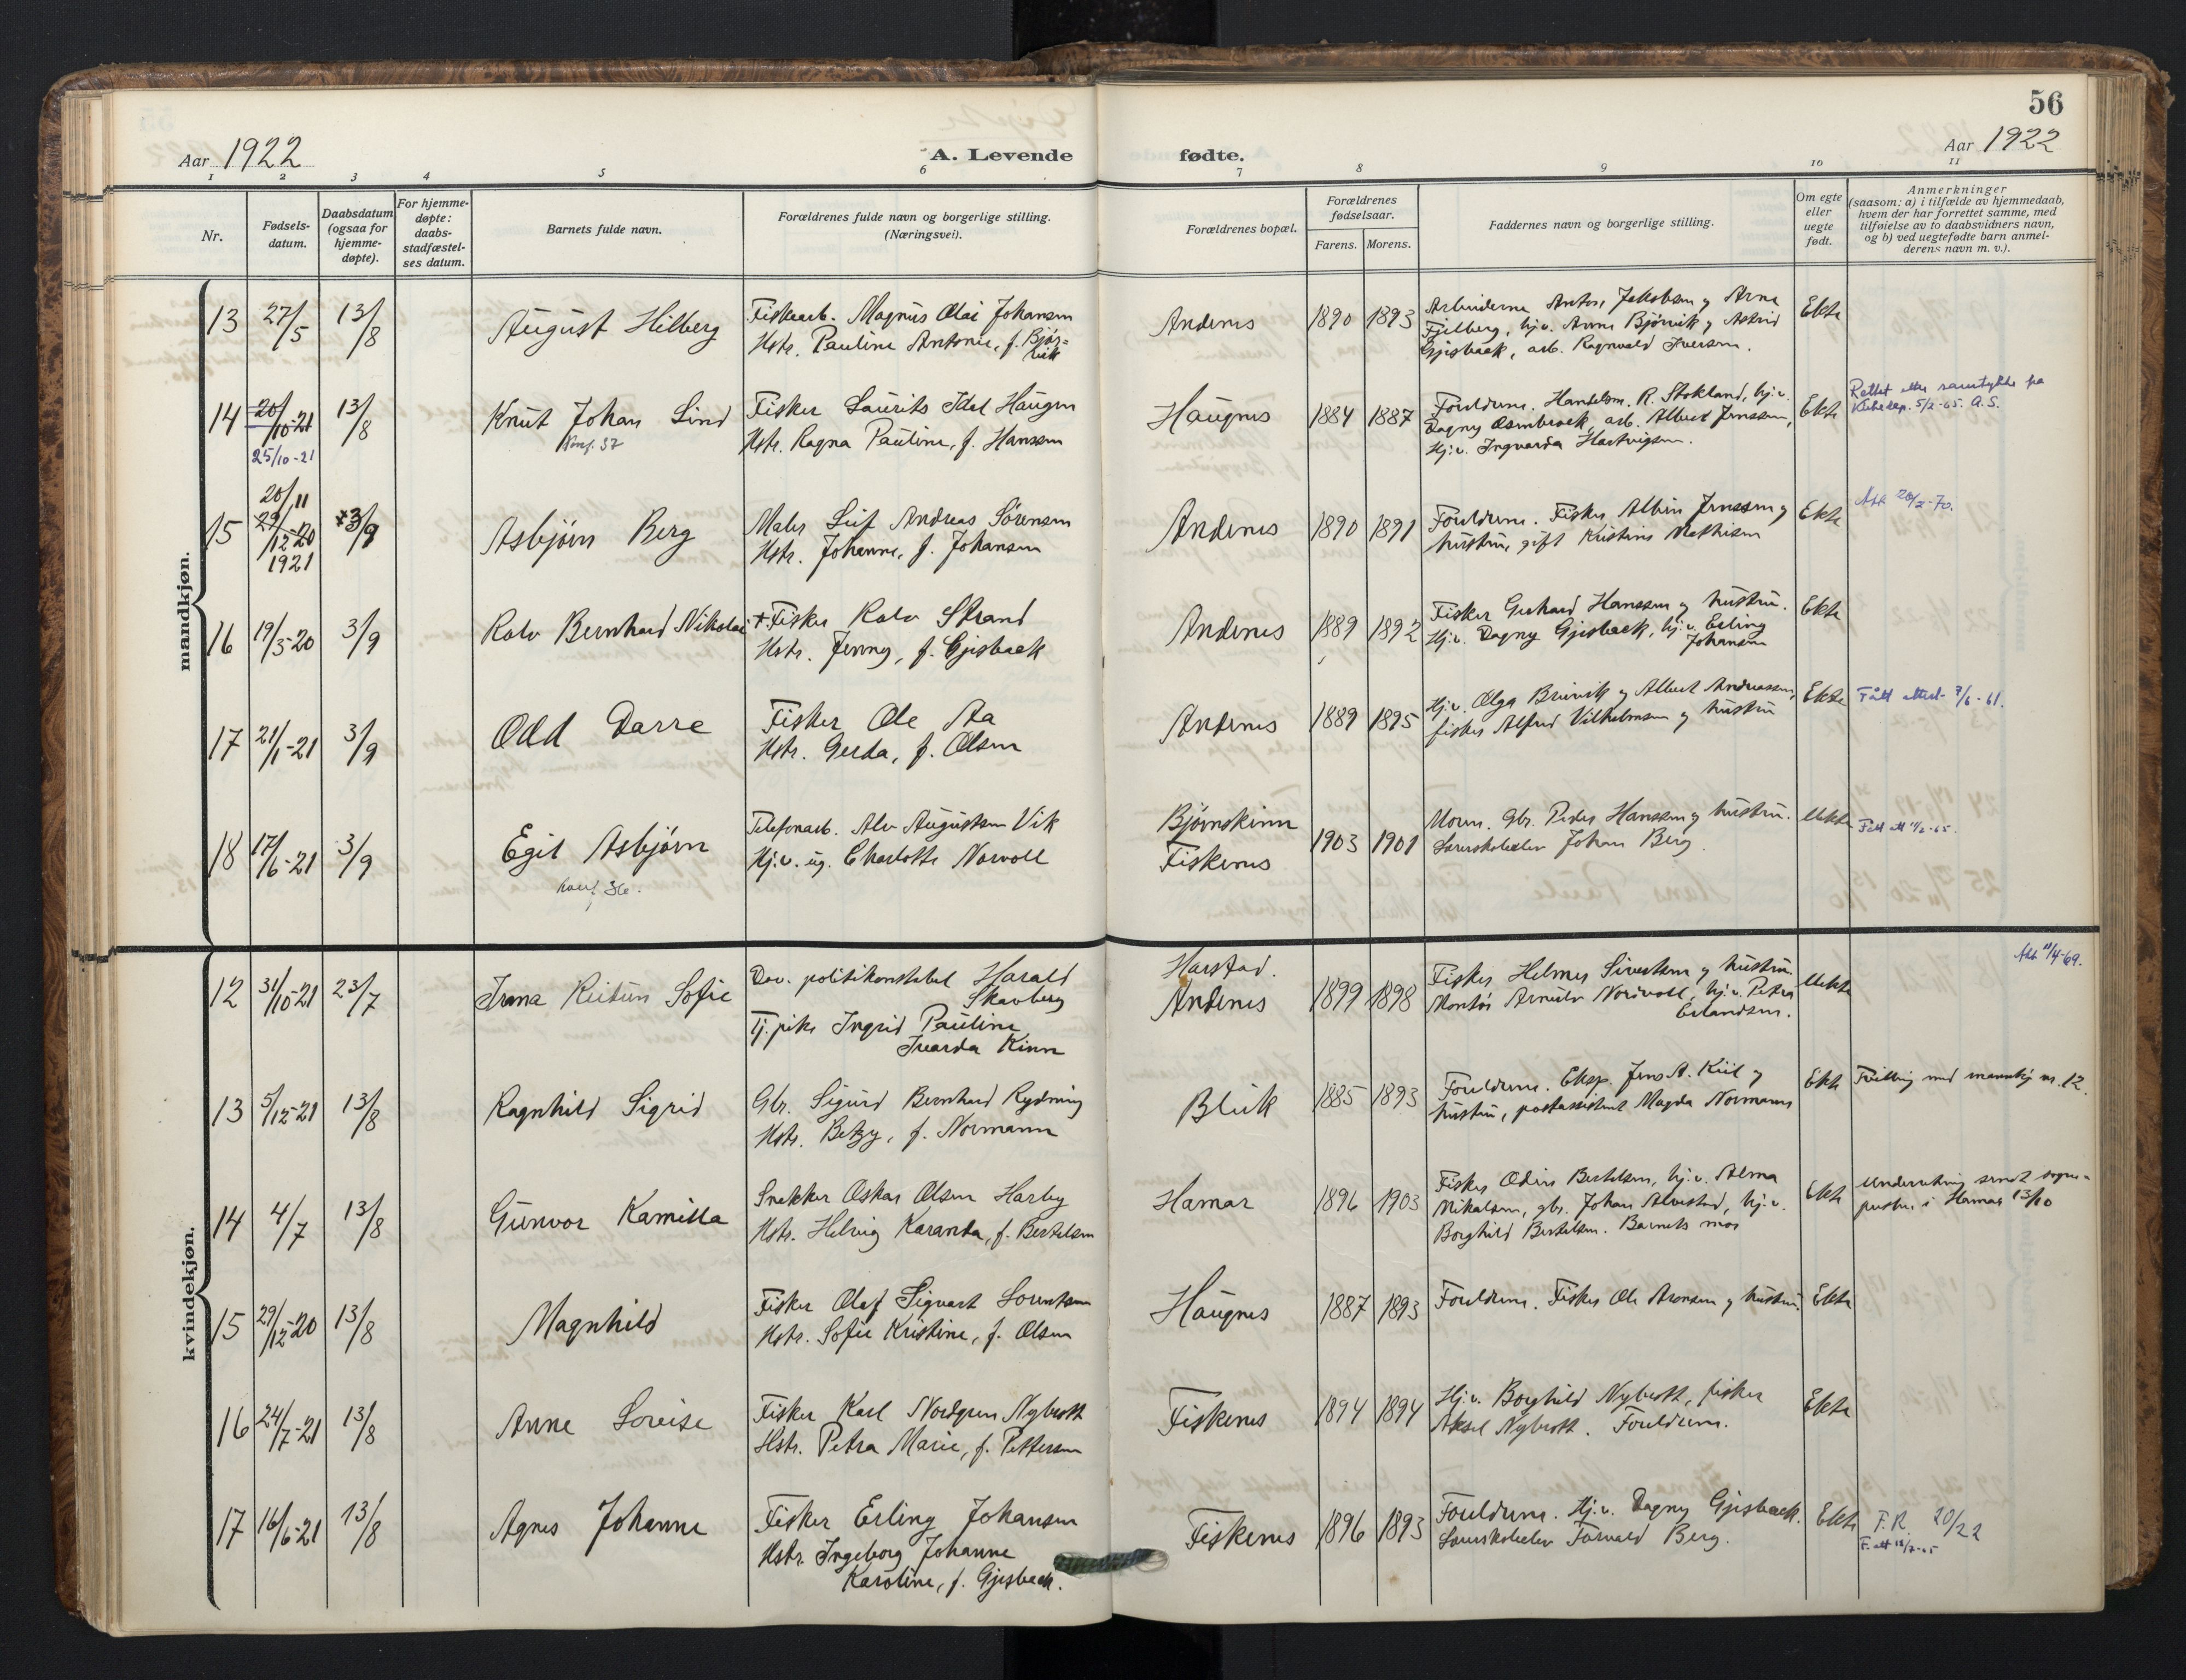 56
Aar 1922
A. Levende fødte.
Aar 1922
1 2 3 4 5 6 7 8 9 10 11
Nr.
Fødsels-
datum.
Daabsdatum
(ogsaa for
hjemme-
døpte).
For hjemme-
døpte:
daabs-
stadfæstel-
ses datum.
Barnets fulde navn.
Forældrenes fulde navn og borgerlige stilling.
(Næringsvei).
Forældrenes bopæl.
Forældrenes
fødselsaar.
Farens. Morens.
Faddernes navn og borgerlige stilling.
Om egte
eller
uegte
født.
Anmerkninger
(saasom: a) i tilfælde av hjemmedaab,
hvem der har forrettet samme, med
tilføielse av to daabsvidners navn,
og b) ved uegtefødte barn anmel-
derens navn m. v.).
mandkjøn.
13 27/5 13/8
August Hilberg
Fiskearb. Magnus Olai Johansen
Hstr. Pauline Antonie, f. Bjør-
vik
Andenes 1890 1893
Arbeiderne Anton Jakobsen og Arne
Fjelberg, hj.v. Anna Bjørvik og Astrid
Gjisbaek, arb. Ragnvald Iversen.
Ekte
14 20/10-21 13/8
25/10-21
Knut Johan Lind
Konf. 37
Fisker Laurits Idel Haugen
Hstr. Ragna Pauline, f. Hanssen
Haugnes 1884 1887
Foreldrene. Handelsm. R. Stokland, hj.v.
Dagny Asmbraek, arb. Albert Jenssen,
Hj.v. Ingvarda Hartvigsen.
Ekte
Rettet etter samtykke fra
Kirkedep. 5/2-65. A.S.
15 20/11 29/12-20 3/9
1921
Asbjørn Berg
Maler Leif Andreas Sørensen
Hstr. Johanne, f. Johansen
Andenes 1890 1891
Foreldrene. Fisker Albin Jenssen og
hustru, gift Kristine Mathisen
Ekte
Att. 20/2-70.
16 19/3-20 3/9
Rolv Bernhard Nikolai
+ Fisker Rolv Strand
Hstr. Jenny, f. Gjisbaek
Andenes 1889 1892
Fisker Gerhard Hanssen og hustru.
Hj.v. Dagny Gjisbaek, hj.v. Erling
Johansen
Ekte
17 21/1-21 3/9
Odd Darre
Fisker Ole Aa
Hstr. Gerda, f. Olsen
Andenes 1889 1895
Hj.v. Olga Breivik og Albert Andreassen,
fisker Alfred Vilhelmsen og hustru
Ekte
Fått attest 7/6-61.
18 17/6-21 3/9
Egil Asbjørn
konf. 36.
Telefonarb. Alv Augustsen Vik
Hj.v. ug. Charlotte Norvoll
Bjørnskinn
Fiskenes
1903 1901
Moren. Gbr. Peder Hanssen og hustru.
Lærerskoleelev Johan Berg.
Uekte
Fått att 11/2-65.
kvindekjøn.
12 31/10-21 23/7
Irma Reidun Sofie
Dav. politikonstabel Harald
Skavberg
Tj.pike Ingrid Pauline
Ivarda Kinn
Harstad.
Andenes
1899 1898
Fisker Helmer Sivertsen og hustru.
Montør Arnulv Nordvoll, hj.v. Petra
Erlandsen.
Uekte
Att 11/4-69.
13 5/12-21 13/8
Ragnhild Sigrid
Gbr. Sigurd Bernhard Rydning
Hstr. Betzy, f. Normann
Bleik 1885 1893
Foreldrene. Eksp. Jens A. Kiil og
hustru, postassistent Magda Normann
Ekte
Tvilling med mannkj. nr. 12.
14 4/7 13/8
Gunvor Kamilla
Snekker Oskar Olsen Harby
Hstr. Helvig Karanda, f. Bertelsen
Hamar 1896 1903
Fisker Odin Bertelsen, hj.v. Alma
Nikalsen, gbr. Johan Alvestad, hj.v.
Borghild Bertelsen. Barnets mor
Ekte
Underretning sendt sogne-
presten i Hamar 13/10
15 29/12-20 13/8
Magnhild
Fisker Olaf Sigvart Lorentsen
Hstr. Sofie Kristine, f. Olsen
Haugnes 1887 1893
Foreldrene. Fisker Ole Aronsen og hustru.
Ekte
16 24/7-21 13/8
Anne Lovise
Fisker Karl Nordgren Nybrott
Hstr. Petra Marie, f. Pettersen
Fiskenes 1894 1894
Hj.v. Borghild Nybrott, fisker
Aksel Nybrott. Foreldrene.
Ekte
17 16/6-21 13/8
Agnes Johanne
Fisker Erling Johansen
Hstr. Ingeborg Johanne
Karoline, f. Gjisbaek.
Fiskenes 1896 1893
Foreldrene. Hj.v. Dagny Gjisbaek.
Lærerskoleelev Torvald Berg.
Ekte
F.R. 20/22
F. att 12/7-65